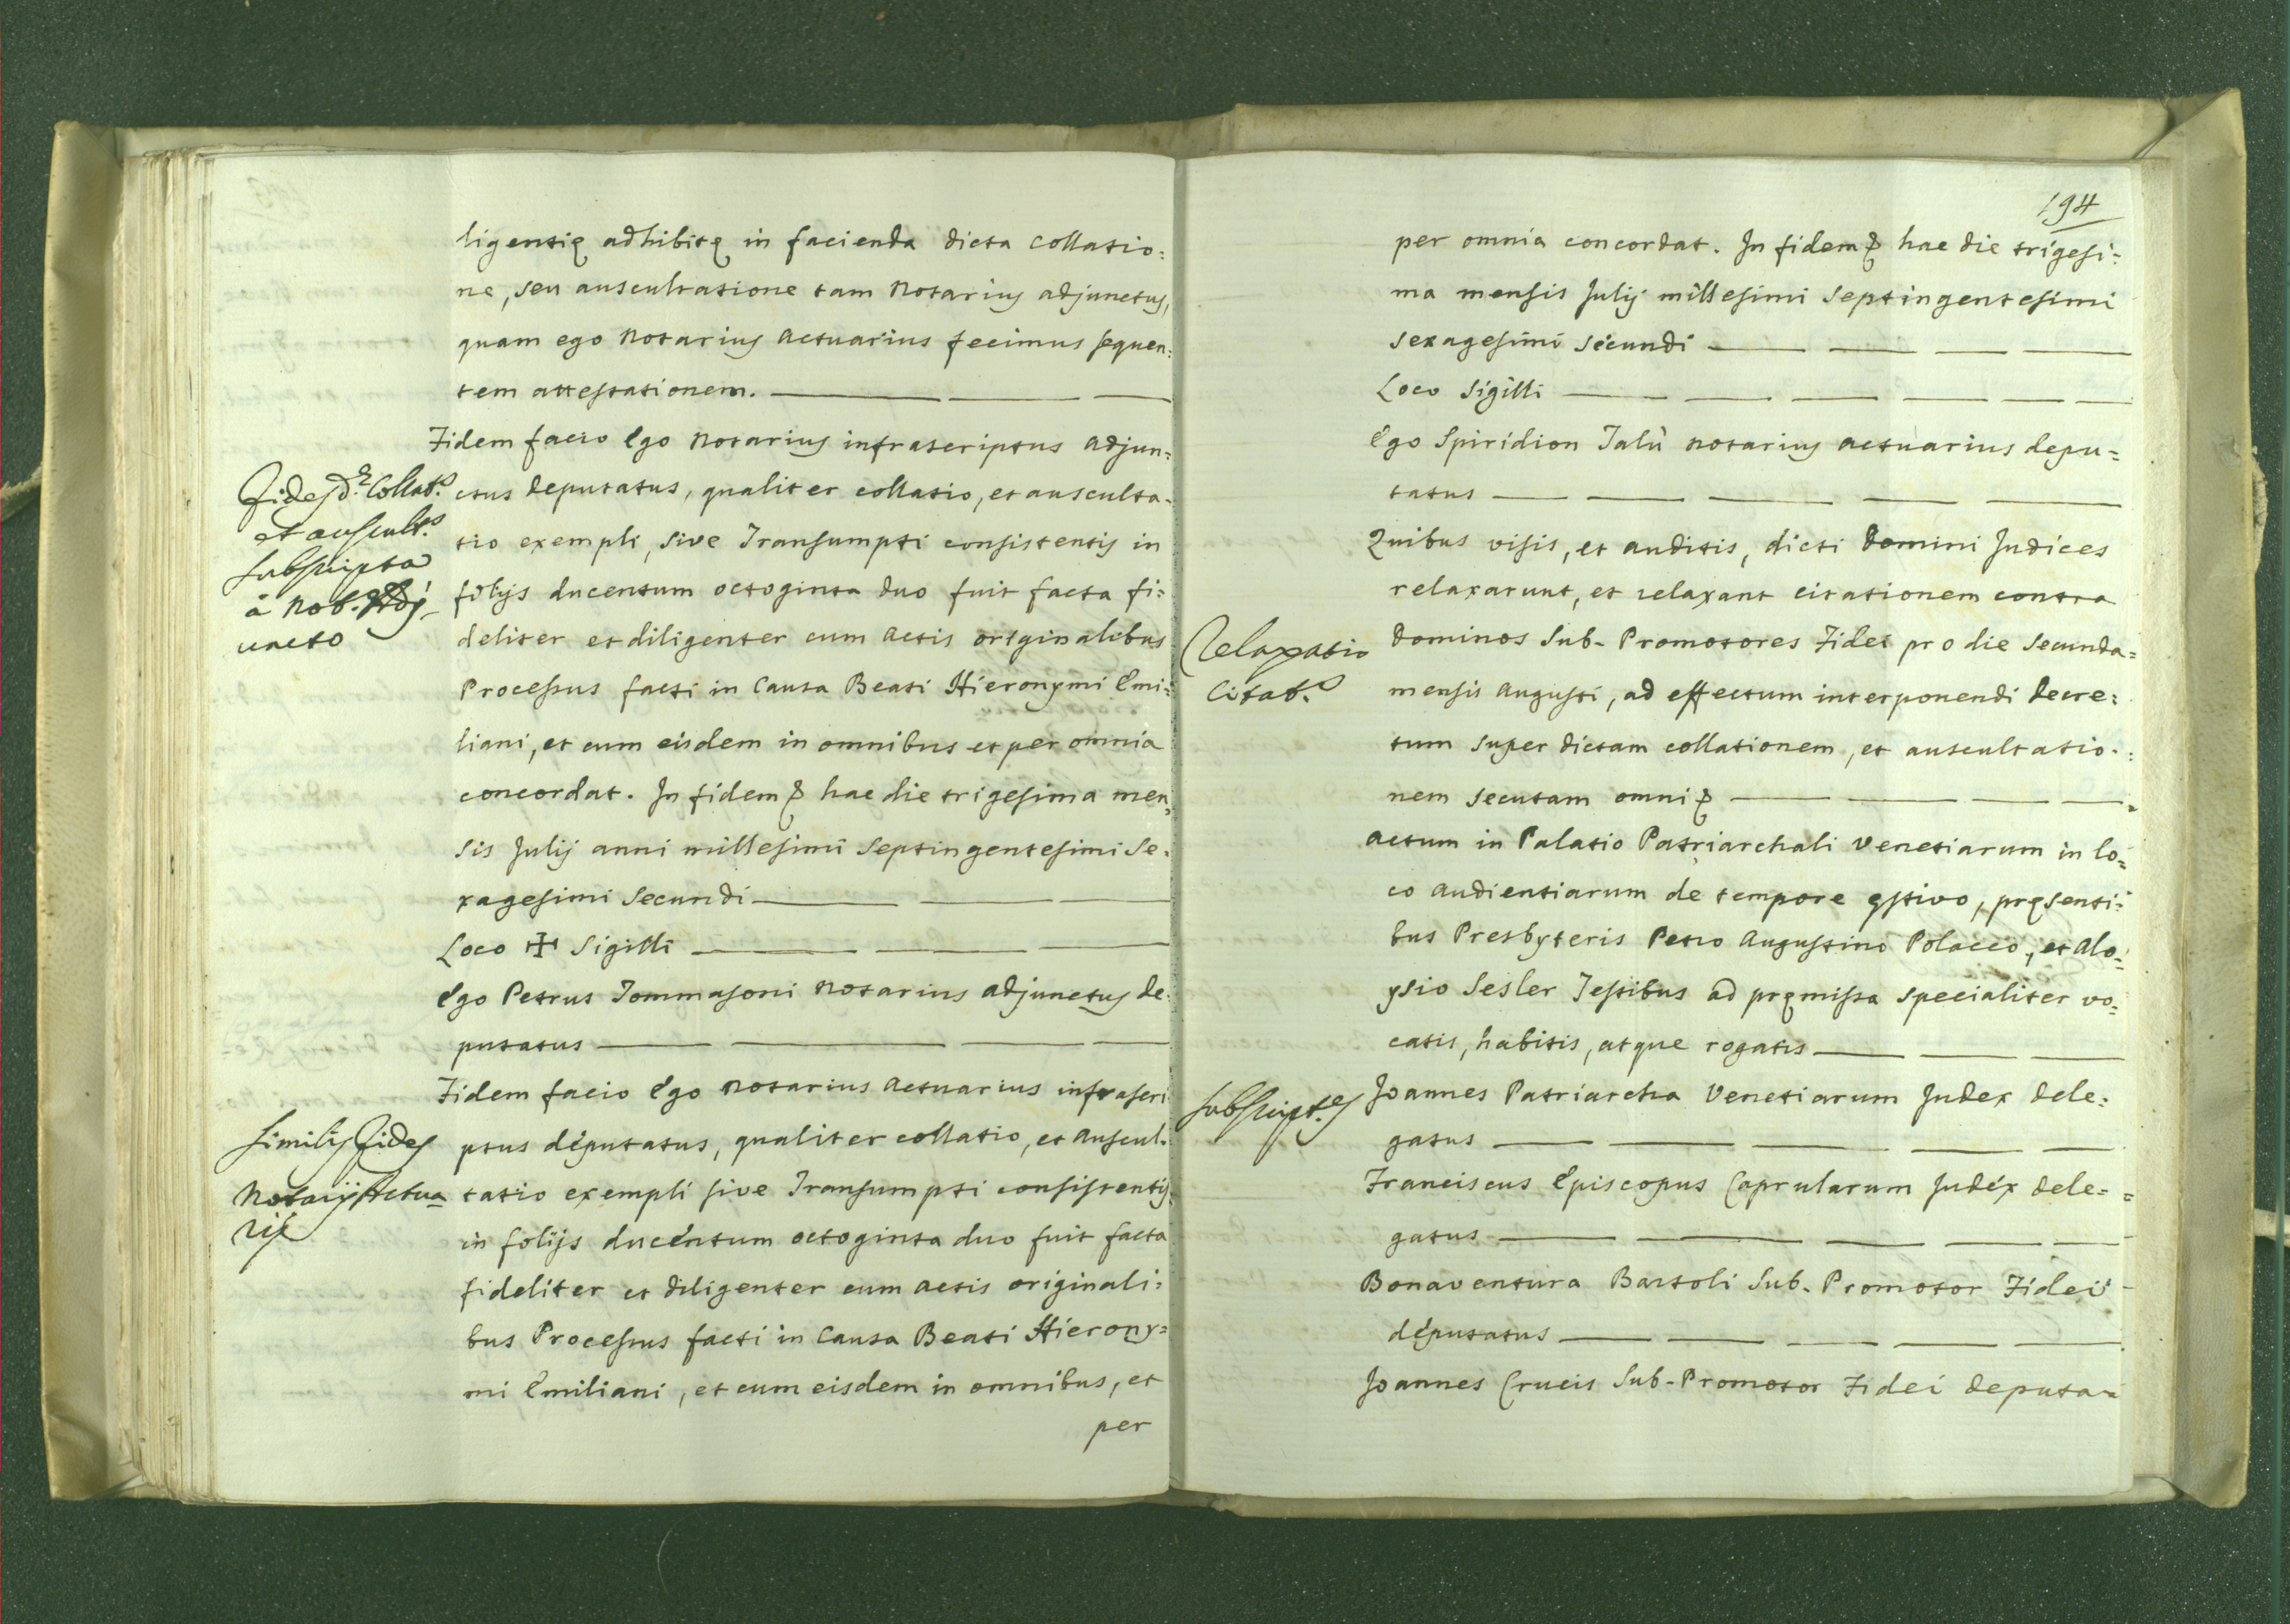 ligentię adhibitę in facienda dicta collatio:
ne, seu auscultatione tam Notarius adjunctus,
quam ego Notarius Actuarius fecimus sequen:
tem attestationem.
Fidem facio Ego Notarius infrascriptus adjun:
ctus deputatus, qualiter collatio, et ausculta-
tio exempli, sive Transumpti consistentis in
folijs ducentum octoginta duo fuit facta fi:
deliter et diligenter cum Actis originalibus
Processus facti in Causa Beati Hieronymi Emi:
liani, et cum eisdem in omnibus et per omnia
concordat. In fidem & hac die trigesima men:
sis Julij anni millesimi septingentesimi se-
xagesimi secundi
Loco ✠ Sigilli
Ego Petrus Tommasoni Notarius adjunctus de-
putatus
Fidem facio Ego Notarius Actuarius infrascri
ptus deputatus, qualiter collatio, et auscul-
tatio exempli sive Transumpti consistentis
in folijs ducentum octoginta duo fuit facta
fideliter et diligenter cum actis originali:
bus Processus facti in Causa Beati Hierony=
mi Emiliani, et cum eisdem in omnibus, et
per
Fides d.æ Collat.s
et auscult.s
subscripta
à Not.
uncto
Similis Fides
Notarij Actua
rij
194
per omnia concordat. In fidem & hac die trigesi:
ma mensis Julij millesimi septingentesimi
sexagesimi secundi
Loco Sigilli
Ego Spiridion Talù Notarius Actuarius depu=
tatus
Quibus visis, et auditis, dicti Domini Judices
relaxarunt, et relaxant citationem contra
Dominos Sub-Promotores Fidei pro die secunda=
mensis Augusti, ad effectum interponendi Decre:
tum super dictam collationem, et auscultatio-:
nem secutam omni &
Actum in Palatio Patriarchali Venetiarum in lo:
co audientiarum de tempore ęstivo, pręsenti:
bus Presbyteris Petro Augustino Polacco, et Alo:
ysio Sesler Testibus ad pręmissa specialiter vo:
catis, habitis, atque rogatis
Joannes Patriarcha Venetiarum Judex Dele:
gatus
Franciscus Episcopus Caprularum Judex Dele=
gatus
Bonaventura Bartoli Sub-Promotor Fidei
deputatus
Joannes Crucis Sub-Promotor Fidei Deputa=
Relaxatio
Citat.s
Subscript.es